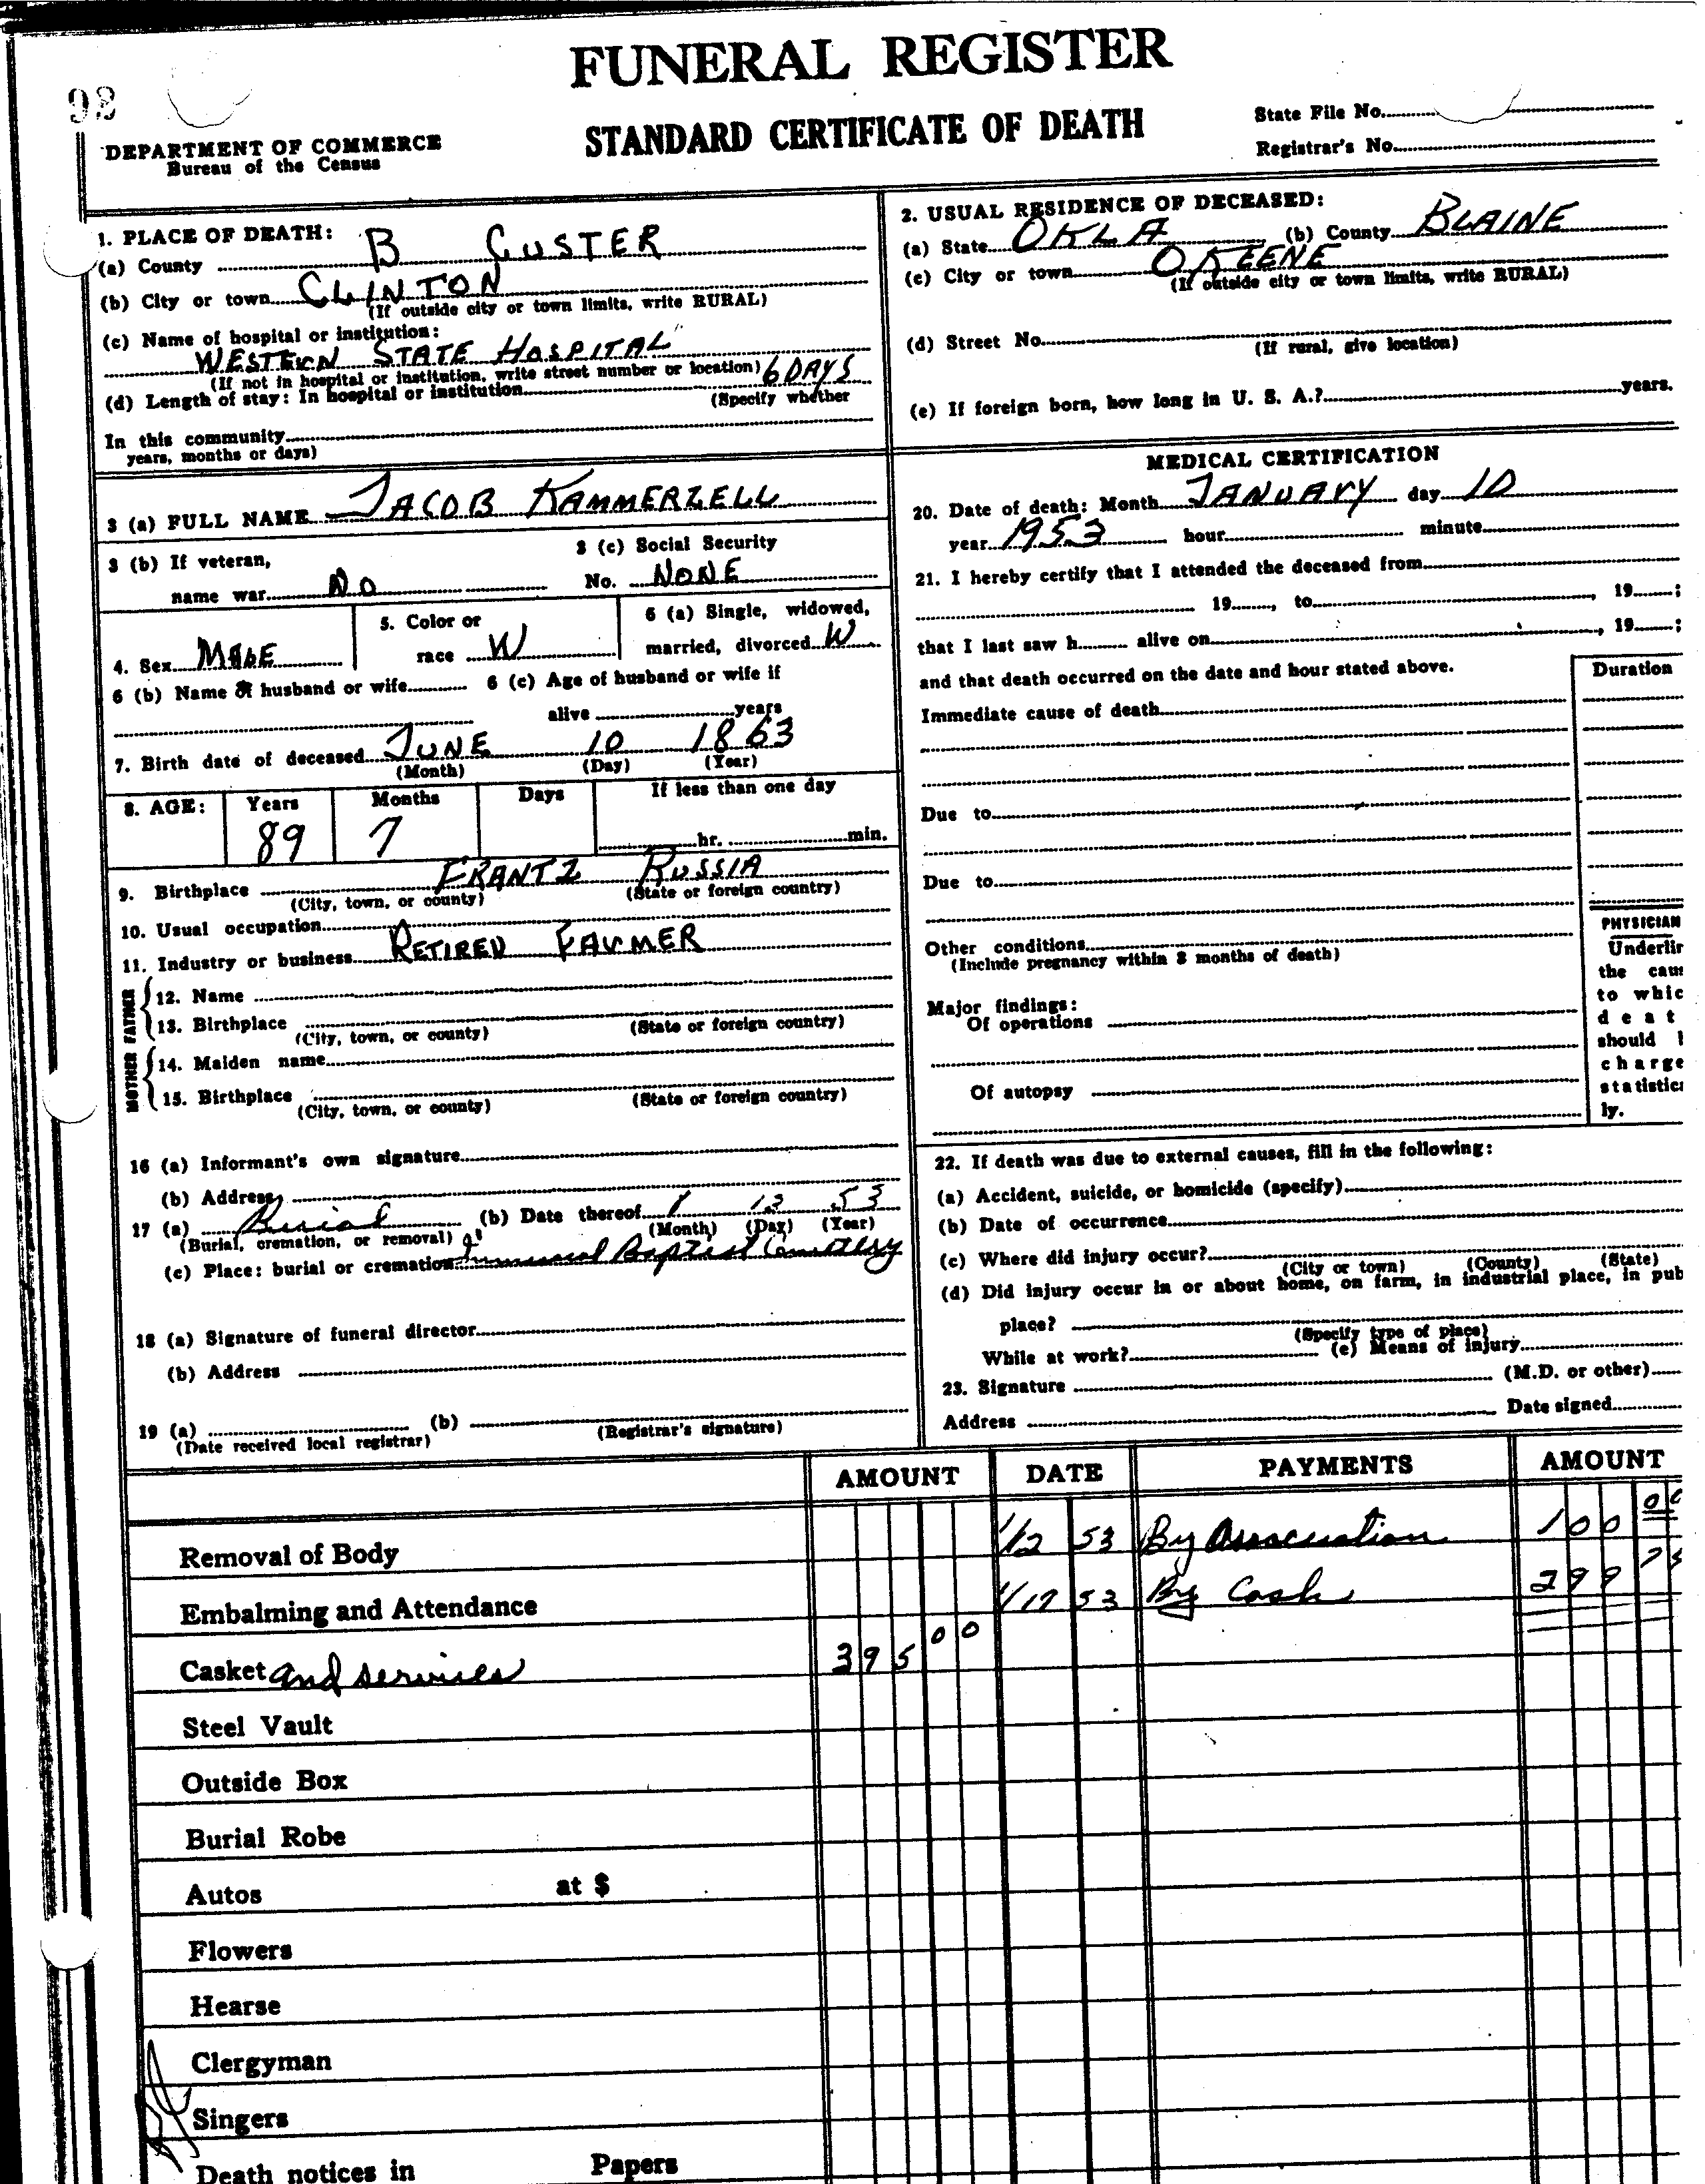 FUNERAL REGISTER
98
STANDARD CERTIFICATE OF DEATH
State File No.
Registrar's No.
DEPARTMENT OF COMMERCE
Bureau of the Census
1. PLACE OF DEATH:
(a) County B CUSTER
(b) City or town CLINTON
(If outside city or town limits, write RURAL)
(c) Name of hospital or institution:
WESTERN STATE HOSPITAL
(If not in hospital or institution, write street number or location)
(d) Length of stay: In hospital or institution 6 DAYS
(Specify whether
In this community
years, months or days)
2. USUAL RESIDENCE OF DECEASED:
(a) State OKLA (b) County BLAINE
(c) City or town OKEENE
(If outside city or town limits, write RURAL)
(d) Street No.
(If rural, give location)
(e) If foreign born, how long in U. S. A.? years.
3 (a) FULL NAME JACOB KAMMERZELL
3 (b) If veteran,
name war No
3 (c) Social Security
No. NONE
4. Sex MALE
5. Color or
race W
6 (a) Single, widowed,
married, divorced W
6 (b) Name of husband or wife
6 (c) Age of husband or wife if
alive years
7. Birth date of deceased JUNE 10 1863
(Month) (Day) (Year)
8. AGE: Years Months Days If less than one day
89 7 hr. min.
9. Birthplace FRANTZ RUSSIA
(City, town, or county) (State or foreign country)
10. Usual occupation
11. Industry or business RETIRED FARMER
FATHER
12. Name
13. Birthplace
(City, town, or county) (State or foreign country)
MOTHER
14. Maiden name
15. Birthplace
(City, town, or county) (State or foreign country)
16 (a) Informant's own signature
(b) Address
17 (a) Burial (b) Date thereof 1 13 53
(Burial, cremation, or removal) (Month) (Day) (Year)
(c) Place: burial or cremation Baptist Cemetery
18 (a) Signature of funeral director
(b) Address
19 (a) (b)
(Date received local registrar) (Registrar's signature)
MEDICAL CERTIFICATION
20. Date of death: Month JANUARY day 10
year 1953 hour minute
21. I hereby certify that I attended the deceased from
19 , to , 19 ;
that I last saw h alive on , 19 ;
and that death occurred on the date and hour stated above.
Duration
Immediate cause of death
Due to
Due to
Other conditions
(Include pregnancy within 3 months of death)
Major findings:
Of operations
Of autopsy
PHYSICIAN
Underlin
the caus
to whic
deat
should b
charge
statistica
ly.
22. If death was due to external causes, fill in the following:
(a) Accident, suicide, or homicide (specify)
(b) Date of occurrence
(c) Where did injury occur?
(City or town) (County) (State)
(d) Did injury occur in or about home, on farm, in industrial place, in pub
place?
(Specify type of place)
While at work? (e) Means of injury
23. Signature (M.D. or other)
Address Date signed
AMOUNT DATE PAYMENTS AMOUNT
Removal of Body 1/12 53 By Association 100 00
Embalming and Attendance 1/19 53 By Cash 299
Casket and services 395 00
Steel Vault
Outside Box
Burial Robe
Autos at $
Flowers
Hearse
Clergyman
Singers
Death notices in Papers